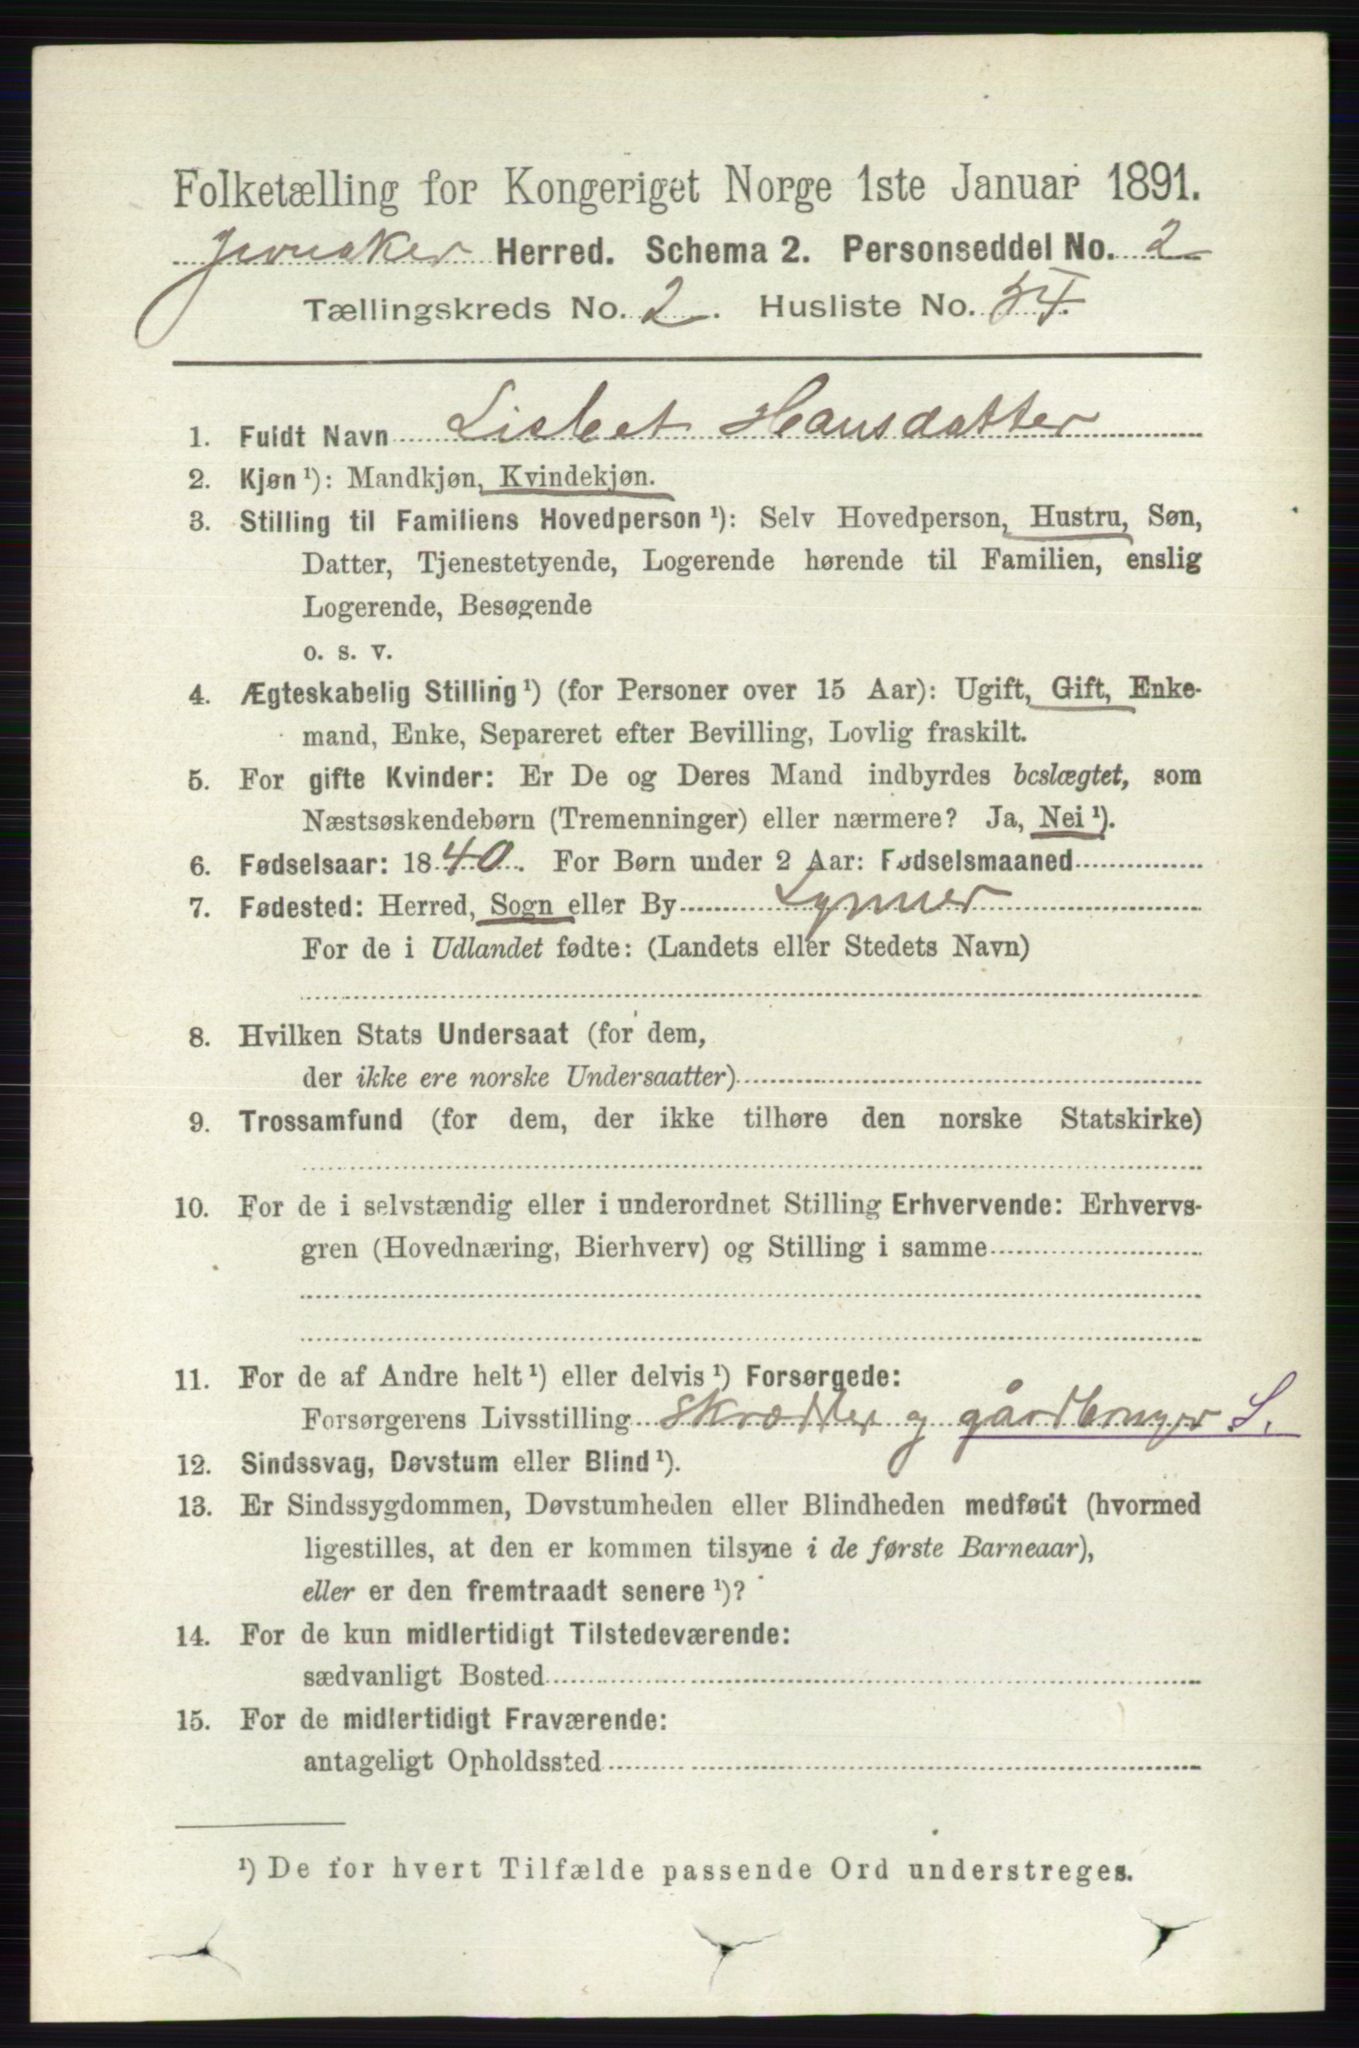 Folketælling for Kongeriget Norge 1ste Januar 1891.
Jevnaker Herred. Schema 2. Personseddel No. 2
Tællingskreds No. 2. Husliste No. 54.
1. Fuldt Navn Lisbet Hansdatter
2. Kjøn¹): Mandkjøn, Kvindekjøn.
3. Stilling til Familiens Hovedperson¹): Selv Hovedperson, Hustru, Søn,
Datter, Tjenestetyende, Logerende hørende til Familien, enslig
Logerende, Besøgende
o. s. v.
4. Ægteskabelig Stilling¹) (for Personer over 15 Aar): Ugift, Gift, Enke-
mand, Enke, Separeret efter Bevilling, Lovlig fraskilt.
5. For gifte Kvinder: Er De og Deres Mand indbyrdes beslægtet, som
Næstsøskendebørn (Tremenninger) eller nærmere? Ja, Nei¹).
6. Fødselsaar: 1840. For Børn under 2 Aar: Fødselsmaaned
7. Fødested: Herred, Sogn eller By Lynner
For de i Udlandet fødte: (Landets eller Stedets Navn)
8. Hvilken Stats Undersaat (for dem,
der ikke ere norske Undersaatter)
9. Trossamfund (for dem, der ikke tilhøre den norske Statskirke)
10. For de i selvstændig eller i underordnet Stilling Erhvervende: Erhvervs-
gren (Hovednæring, Bierhverv) og Stilling i samme
11. For de af Andre helt¹) eller delvis¹) Forsørgede:
Forsørgerens Livsstilling Skrædder og gårdbruger S.
12. Sindssvag, Døvstum eller Blind¹).
13. Er Sindssygdommen, Døvstumheden eller Blindheden medfødt (hvormed
ligestilles, at den er kommen tilsyne i de første Barneaar),
eller er den fremtraadt senere¹)?
14. For de kun midlertidigt Tilstedeværende:
sædvanligt Bosted
15. For de midlertidigt Fraværende:
antageligt Opholdssted
¹) De for hvert Tilfælde passende Ord understreges.